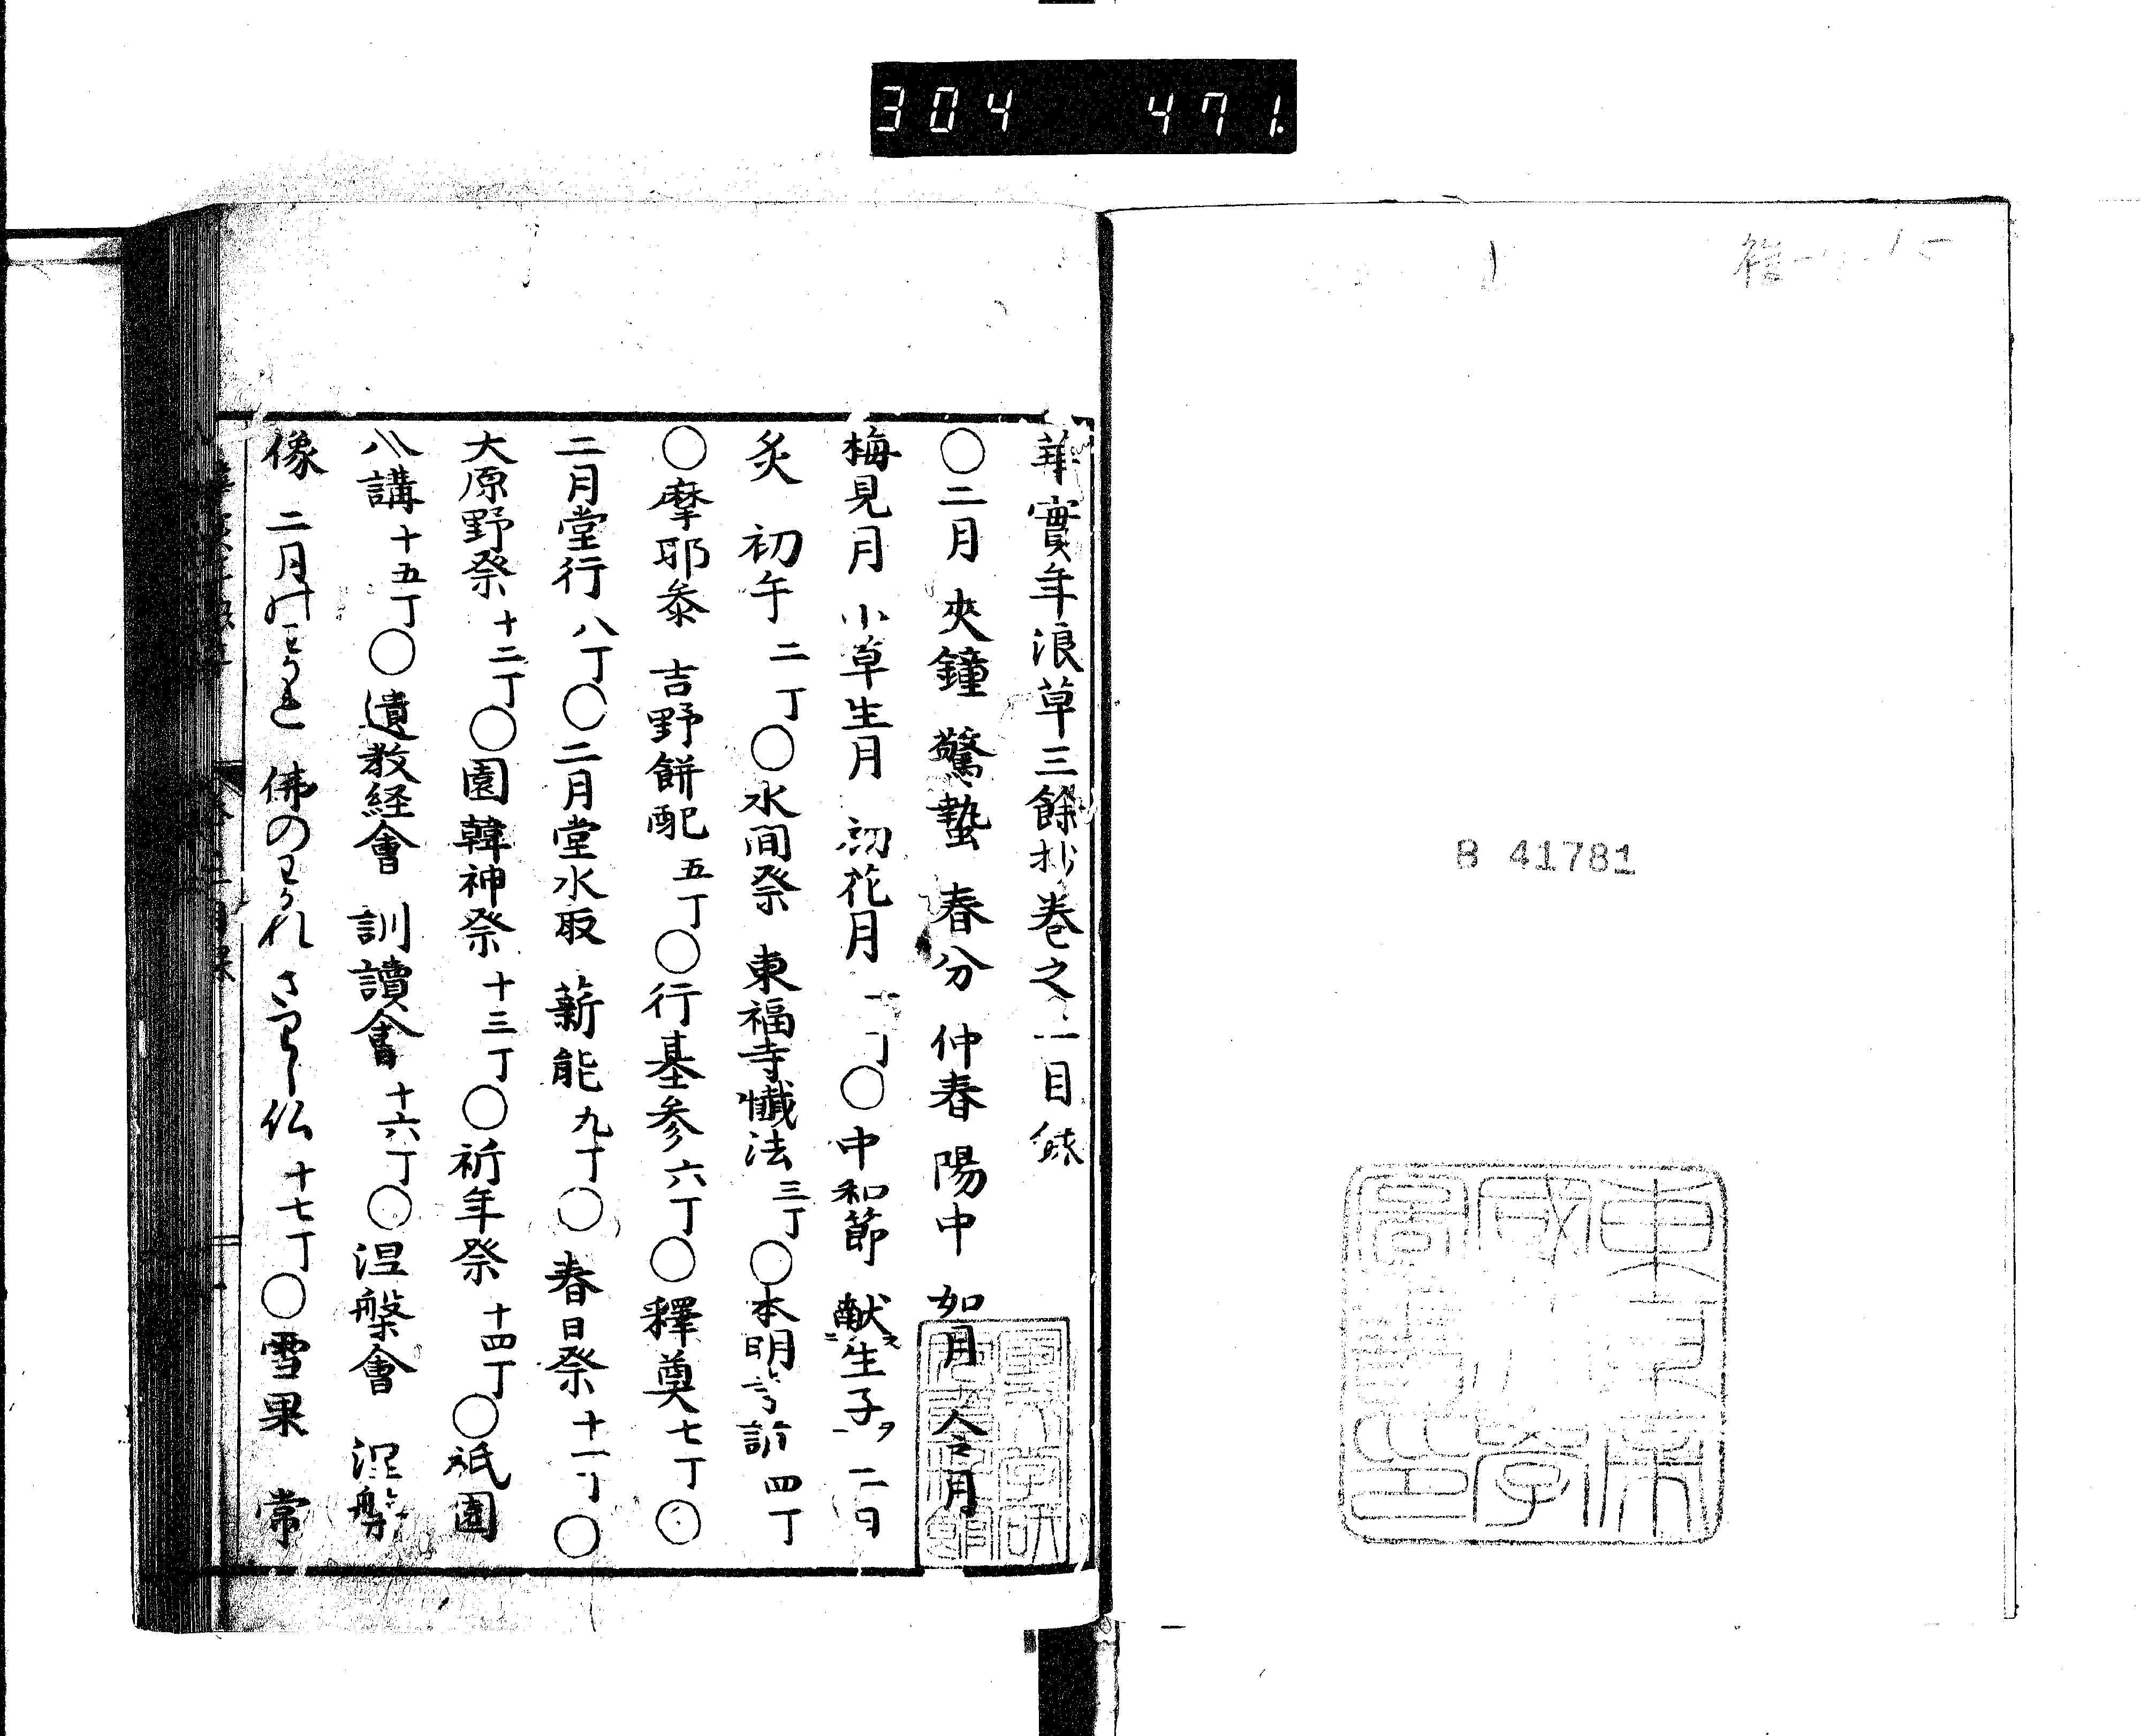 304 471.
B 41781
華實年浪草三餘抄巻之一目録
〇二月 夾鐘 驚蟄 春分 仲春 陽中 如月 令月
梅見月 小草生月 初花月 一丁〇中和節 献生子 二日
炙 初午 二丁〇水間祭 東福寺懺法 三丁〇本明 詣 四丁
〇摩耶参 吉野餅配 五丁〇行基参 六丁〇釋奠 七丁〇
二月堂行 八丁〇二月堂水取 薪能 九丁〇春日祭 十一丁〇
大原野祭 十二丁〇園韓神祭 十三丁〇祈年祭 十四丁〇祇園
八講 十五丁〇遺教経會 訓讀會 十六丁〇涅槃會 涅槃
像 二月のわかれ 佛のわかれ 仏 十七丁〇雪果 常